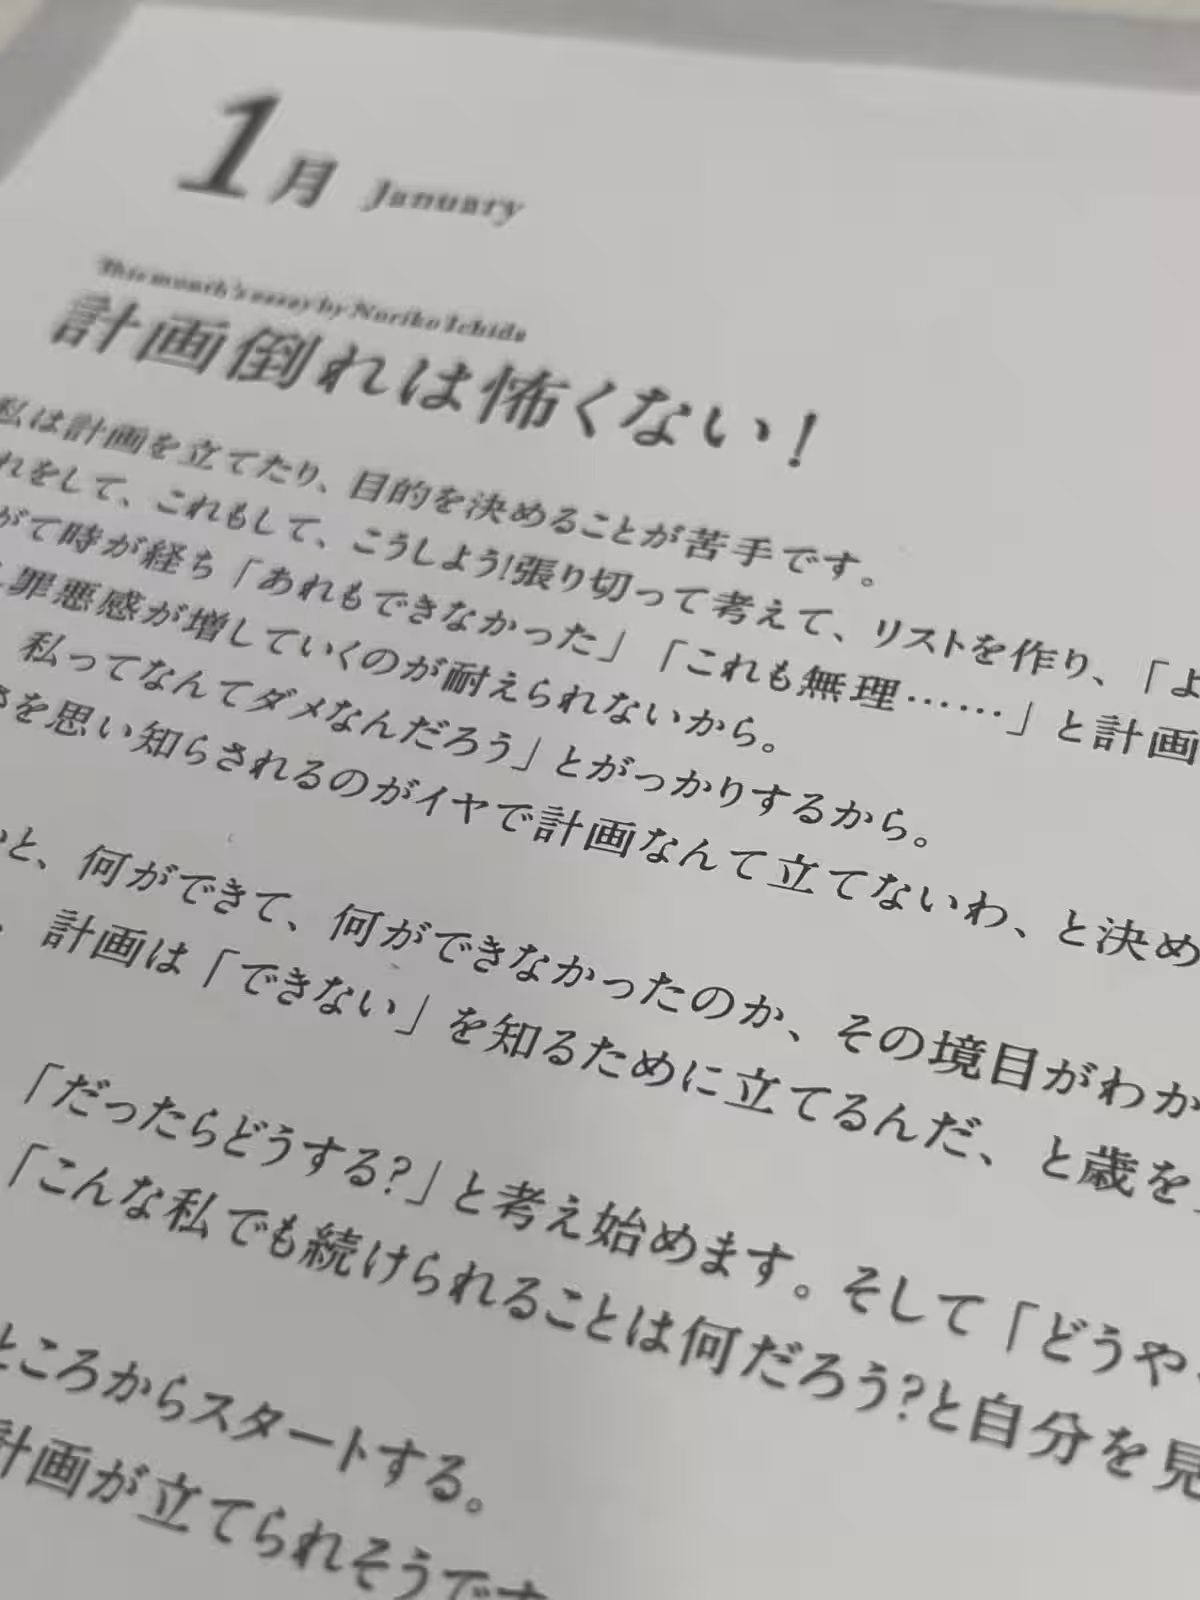 1月 January
This month's essay by Noriko Ichida
計画倒れは怖くない！
私は計画を立てたり、目的を決めることが苦手です。
れをして、これもして、こうしよう!張り切って考えて、リストを作り、「よ
がて時が経ち「あれもできなかった」「これも無理……」と計画
罪悪感が増していくのが耐えられないから。
私ってなんてダメなんだろう」とがっかりするから。
さを思い知らされるのがイヤで計画なんて立てないわ、と決め
と、何ができて、何ができなかったのか、その境目がわか
計画は「できない」を知るために立てるんだ、と歳を
「だったらどうする?」と考え始めます。そして「どうや
「こんな私でも続けられることは何だろう?と自分を見
ところからスタートする。
計画が立てられそうです